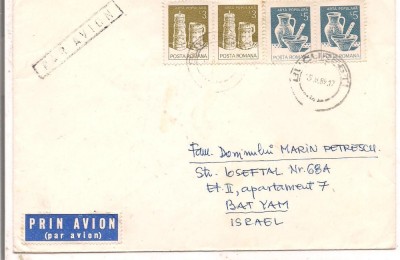 PAR AVION
ARTA POPULARA
3
POSTA ROMANA
ARTA POPULARA
3
POSTA ROMANA
ARTA POPULARA
5
POSTA ROMANA
ARTA POPULARA
5
POSTA ROMANA
Fam. Domnului MARIN PETRESCU
Str. IOSEFTAL Nr. 68A
Et. II, apartament 7
BAT YAM
ISRAEL
PRIN AVION
(par avion)